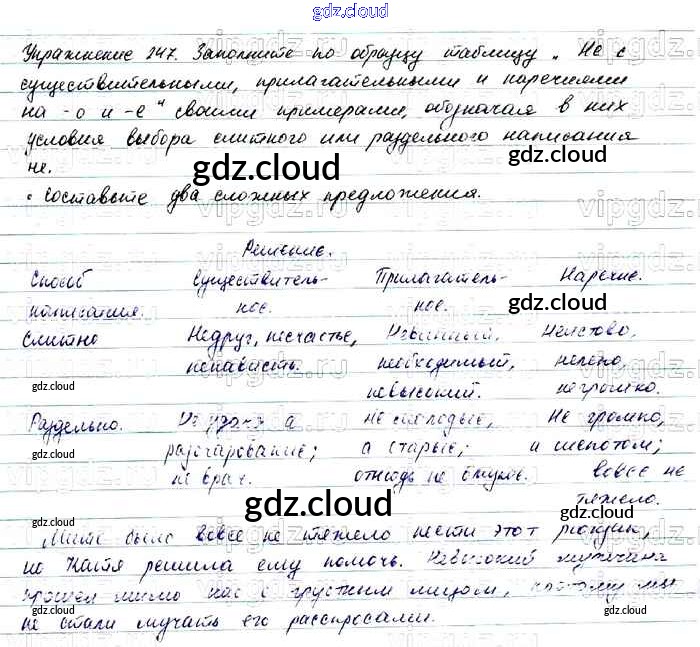 gdz.cloud
Упражнение 247. Заполните по образцу таблицу „Не с
существительными, прилагательными и наречиями
на -о и -е" своими примерами, обозначая в них
условия выбора слитного или раздельного написания
не.
gdz.cloud
• Составьте два сложных предложения.
Решение.
Способ написания. Существительное. Прилагательное. Наречие.
gdz.cloud
Слитно Недруг, несчастье, Невинный, Неистово,
ненависть. необходимый, нелепо,
gdz.cloud gdz.cloud
невысокий. негромко.
Раздельно. Не а не молодые, Не громко,
разочарование; а старые; и шепотом;
gdz.cloud
не враг. отнюдь не вовсе не
тяжело.
gdz.cloud
Мите было вовсе не тяжело нести этот рюкзак,
gdz.cloud
но Настя решила ему помочь. Невысокий мужчина
прошел мимо нас с грустным лицом, поэтому мы
gdz.cloud gdz.cloud
не стали мучать его расспросами.